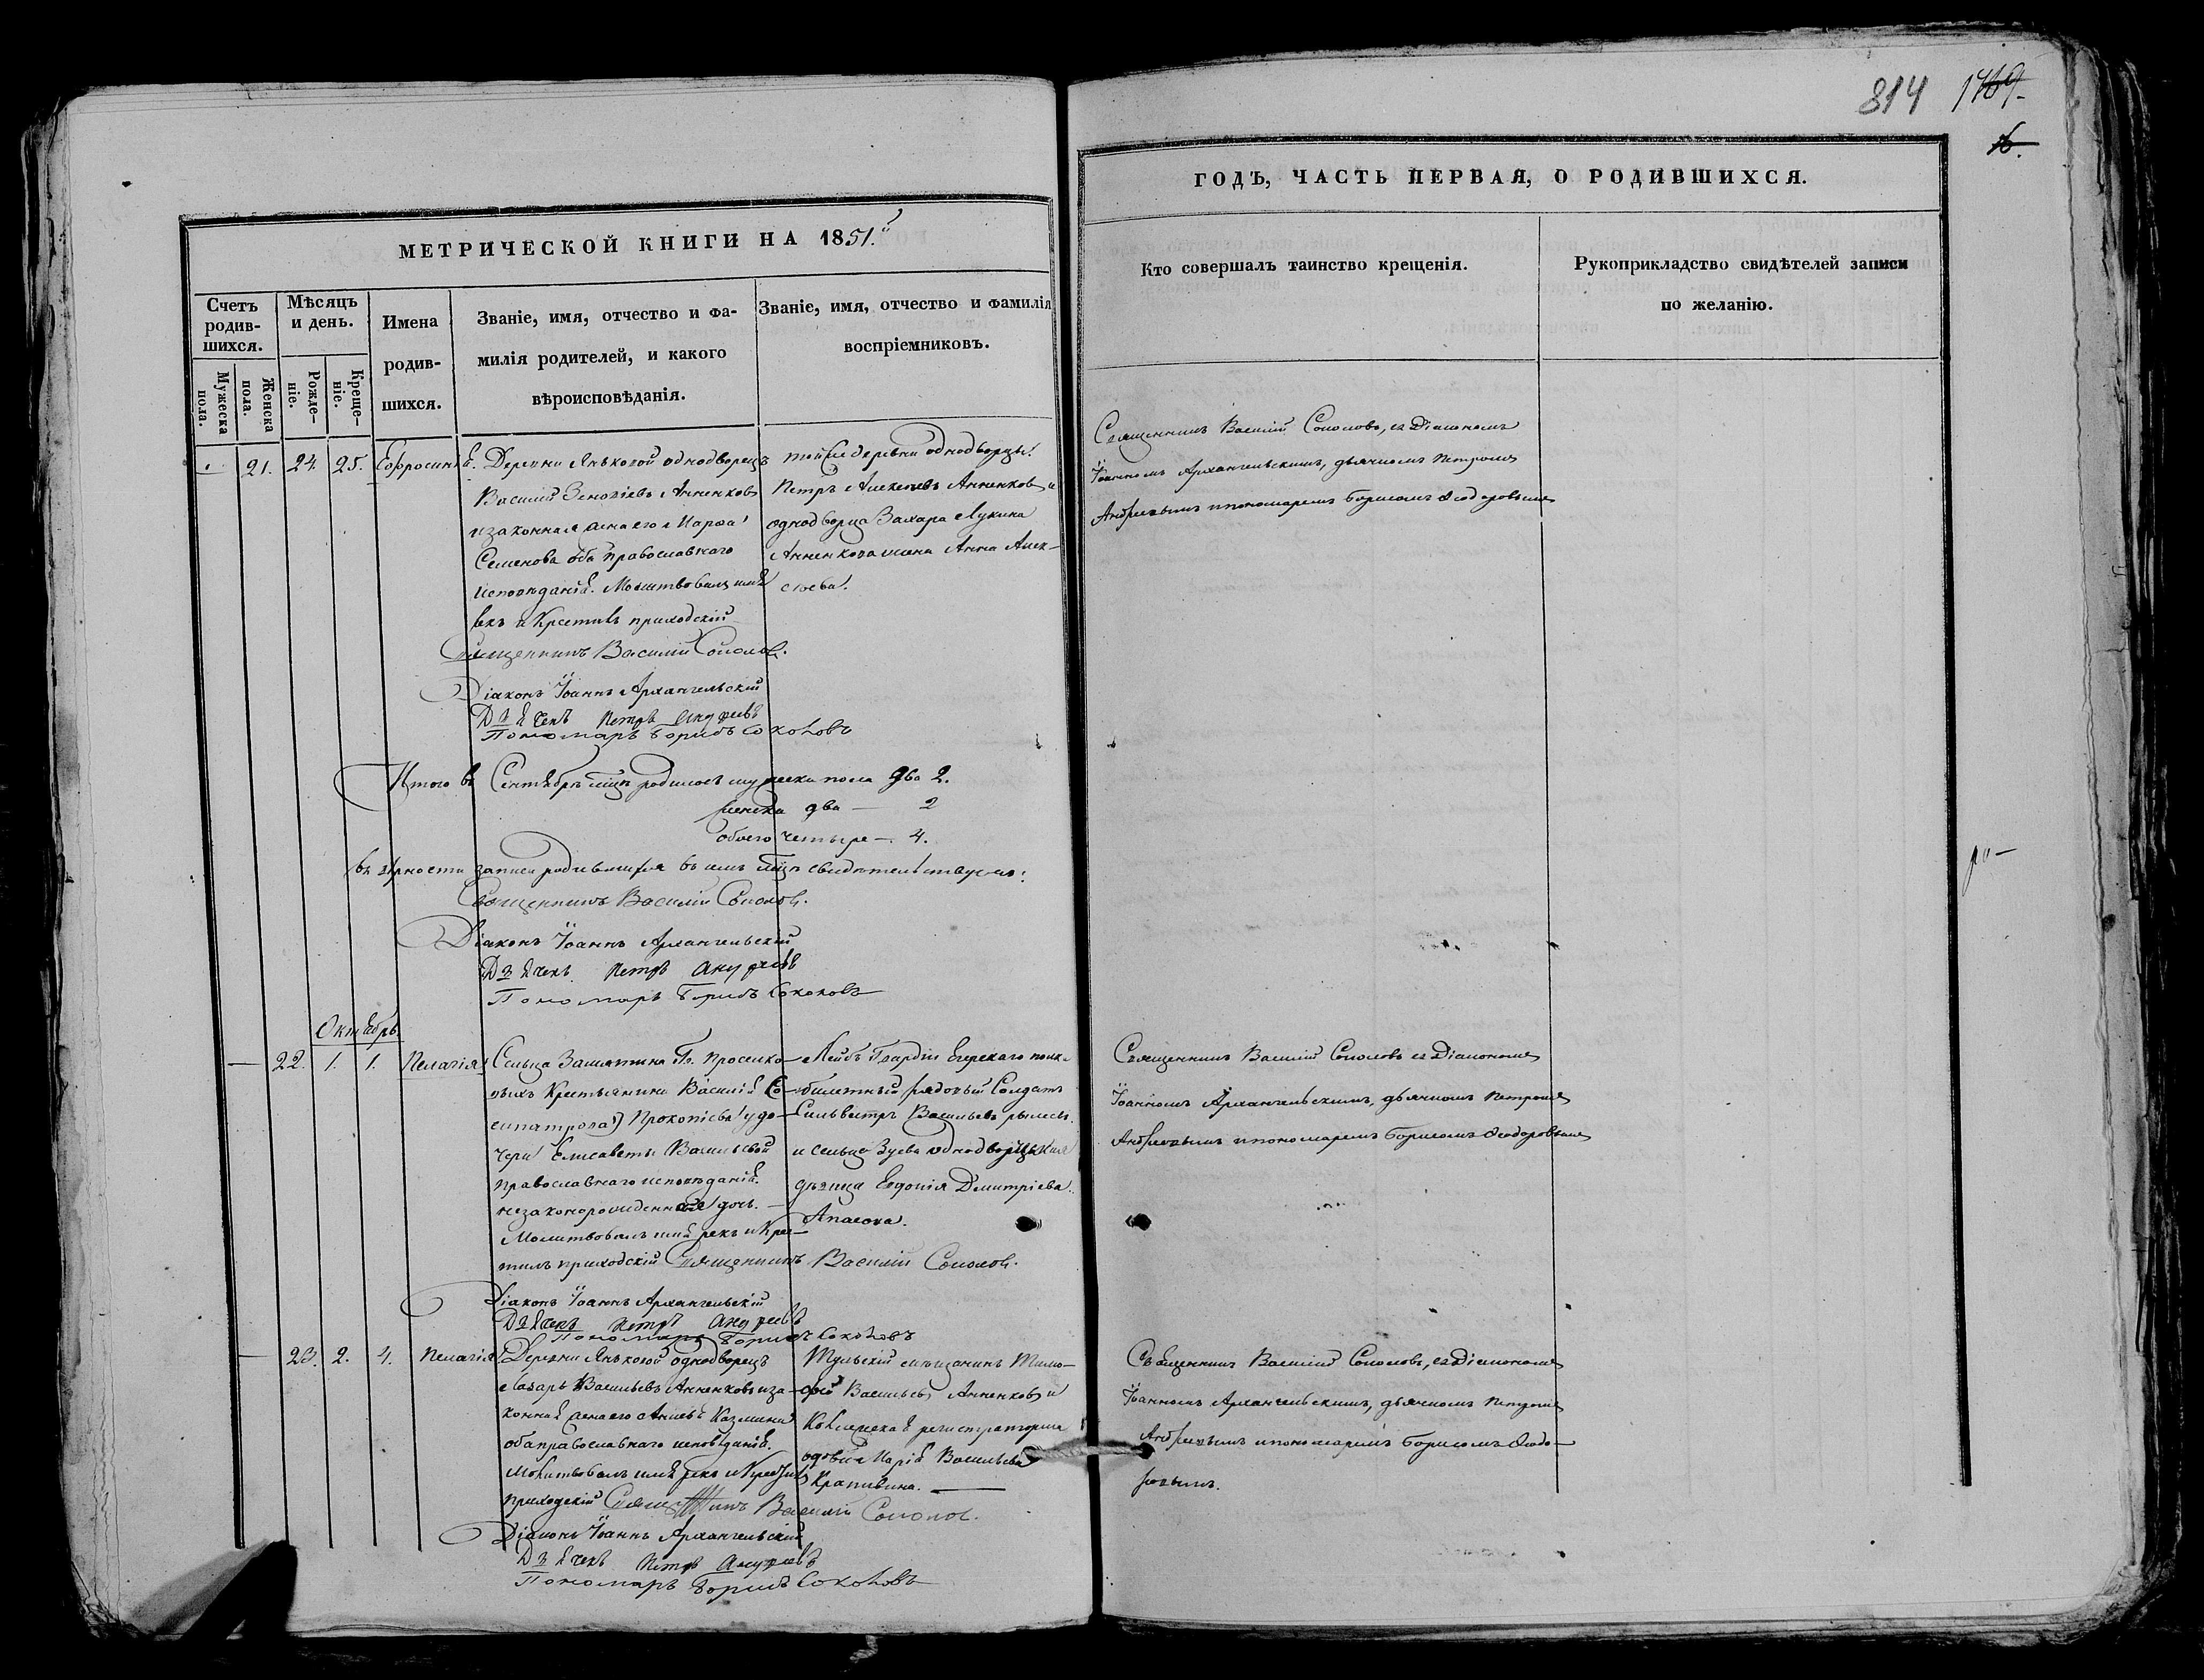 814 1769.
16.
МЕТРИЧЕСКОЙ КНИГИ НА 1851.й
Счетъ родив-
шихся.
Мужеска пола.
Женска пола.
Мѣсяцъ и день.
Рожде-
ніе.
Креще-
ніе.
Имена
родив-
шихся.
Званіе, имя, отчество и фа-
милія родителей, и какого
вѣроисповѣданія.
Званіе, имя, отчество и фамилія
воспріемниковъ.
ГОДЪ, ЧАСТЬ ПЕРВАЯ, О РОДИВШИХСЯ.
Кто совершалъ таинство крещенія.
Рукоприкладство свидѣтелей записи
по желанію.
21. 24. 25. Евфросинія.
Деревни Яньковой однодворецъ
Василій Анненковъ
и законная жена его Марѳа
Семенова оба православнаго
исповѣданія. Молитвовалъ имя
рекъ и Крестилъ приходскій
Священникъ Василій Соколовъ.
Діаконъ Іоаннъ Архангельскій
Дьячекъ Петръ Андреевъ
Пономарь Борисъ Соколовъ
той же деревни однодворцы
Петръ Алексѣевъ Анненковъ и
однодворца Захара Лукина
Анненкова жена Анна Алек-
сѣева.
Священникъ Василій Соколовъ, съ Діакономъ
Іоанномъ Архангельскимъ, дьячкомъ Петромъ
Андреевымъ и пономаремъ Борисомъ Ѳеодоровымъ
Итого въ Сентябрѣ мцѣ родилось мужеска пола два 2.
женска два — 2
обоего четыре — 4.
въ вѣрности записи родившихся въ семъ мцѣ свидѣтельствуемъ:
Священникъ Василій Соколовъ.
Діаконъ Іоаннъ Архангельскій
Дьячекъ Петръ Андреевъ
Пономарь Борисъ Соколовъ
Октябрь
— 22. 1. 1. Пелагія
Сельца Замятина Гг. Просѣлко-
выхъ Крестьянина Василія Со-
сипатрова) Прокопіева у до-
чери Елисаветы Васильевой
православнаго исповѣданія.
незаконорожденная дочь. —
Молитвовалъ имя рекъ и Крес-
тилъ приходскій Священникъ Василій Соколовъ.
Діаконъ Іоаннъ Архангельскій
Дьячекъ Петръ Андреевъ
Пономарь Борисъ Соколовъ
Лейбъ Гвардіи Егерскаго полка
билетный рядовый Солдатъ
Сильвестръ Васильевъ
и сельца Зуева однодворческая
дѣвица Евдокія Дмитріева
Апасова.
Священникъ Василій Соколовъ съ Діакономъ
Іоанномъ Архангельскимъ, дьячкомъ Петромъ
Андреевымъ и пономаремъ Борисомъ Ѳеодоровымъ
— 23. 2. 4. Пелагія
Деревни Яньковой однодворецъ
Лазарь Васильевъ Анненковъ и за-
конная жена его Козмина
оба православнаго исповѣданія.
Молитвовалъ имя рекъ и Крестилъ
приходскій Священникъ Василій Соколовъ.
Діаконъ Іоаннъ Архангельскій
Дьячекъ Петръ Андреевъ
Пономарь Борисъ Соколовъ
Тульскій мѣщанинъ Тимо-
фей Васильевъ Анненковъ и
Коллежская регистраторша
вдова Марія Васильева
Крапивина. —
Священникъ Василій Соколовъ, съ Діакономъ
Іоанномъ Архангельскимъ, дьячкомъ Петромъ
Андреевымъ и пономаремъ Борисомъ Ѳеодо-
ровымъ.